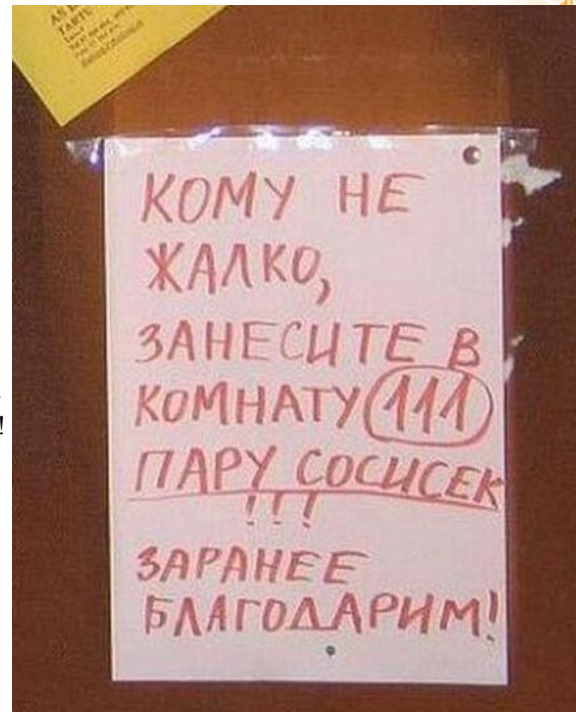 TARTU
КОМУ НЕ
ЖАЛКО,
ЗАНЕСИТЕ В
КОМНАТУ 111
ПАРУ СОСИСЕК
!!!
ЗАРАНЕЕ
БЛАГОДАРИМ!
!